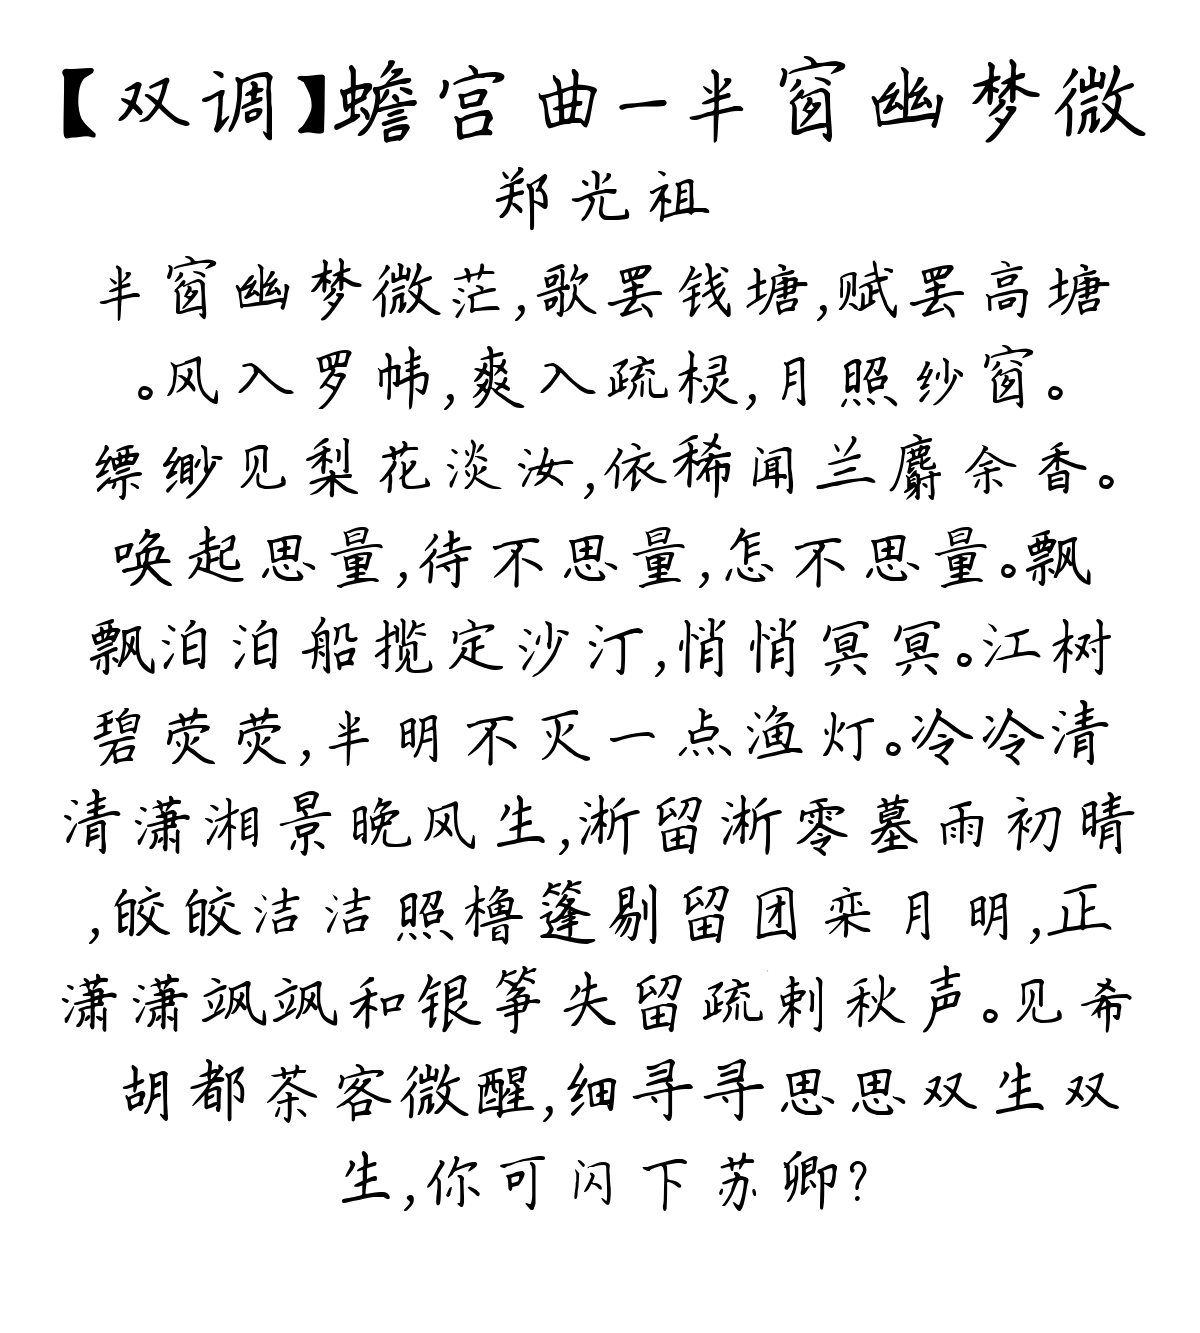 【双调】蟾宫曲一半窗幽梦微
郑光祖
半窗幽梦微茫,歌罢钱塘,赋罢高塘
。风入罗帏,爽入疏棂,月照纱窗。
缥缈见梨花淡汝,依稀闻兰麝余香。
唤起思量,待不思量,怎不思量。飘
飘泊泊船揽定沙汀,悄悄冥冥。江树
碧荧荧,半明不灭一点渔灯。冷冷清
清潇湘景晚风生,淅留淅零墓雨初晴
,皎皎洁洁照橹篷剔留团栾月明,正
潇潇飒飒和银筝失留疏刺秋声。见希
胡都茶客微醒,细寻寻思思双生双
生,你可闪下苏卿?